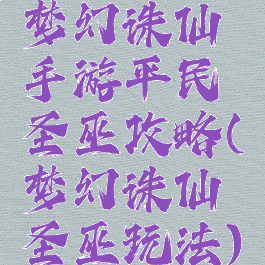 梦幻诛仙
手游平民
圣巫攻略(
梦幻诛仙
圣巫玩法)